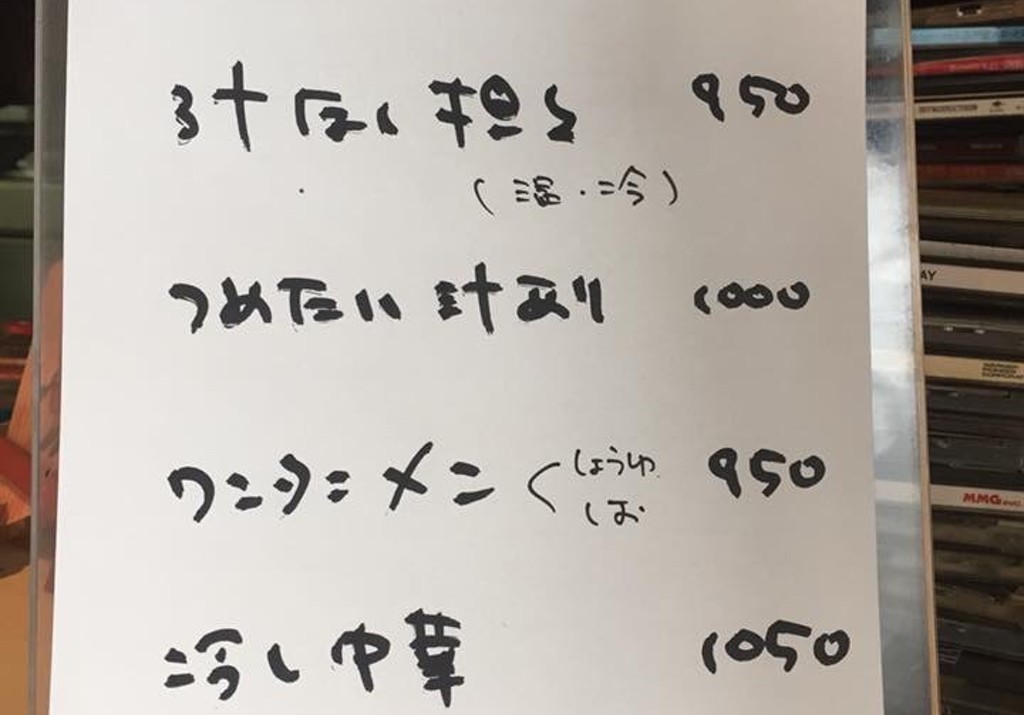 汁なし担々 950
(温・冷)
つめたい 汁あり 1000
ワンタンメン しょうゆ 950
しお
冷し中華 1050
INTRODUCTION
AY
MMG